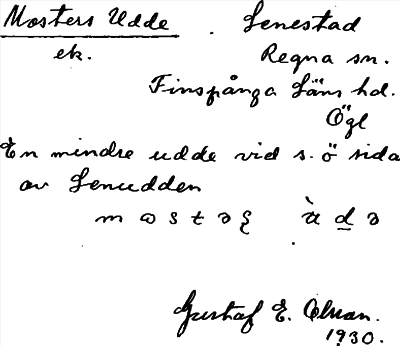 Mosters Udde . Lenestad
ek. Regna sn.
Finspånga Läns hd.
Ögl
En mindre udde vid s.ö sida
av Lenudden
Gustaf E.
1930.